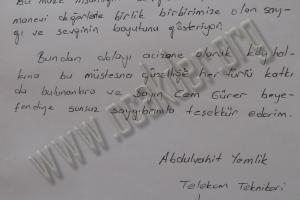 Bu müze
manevi değerlerle birlik birbirimize olan say-
gı ve sevginin boyutunu gösteriyor.
Bundan dolayı acizane olarak köy hal-
kına bu müstesna güzelliğe her türlü katkı
da bulunanlara ve Sayın Cem Gürer beye-
fendiye sonsuz saygılarımla teşekkür ederim.
Abdulvahit Yemlik
Telekom Teknikeri